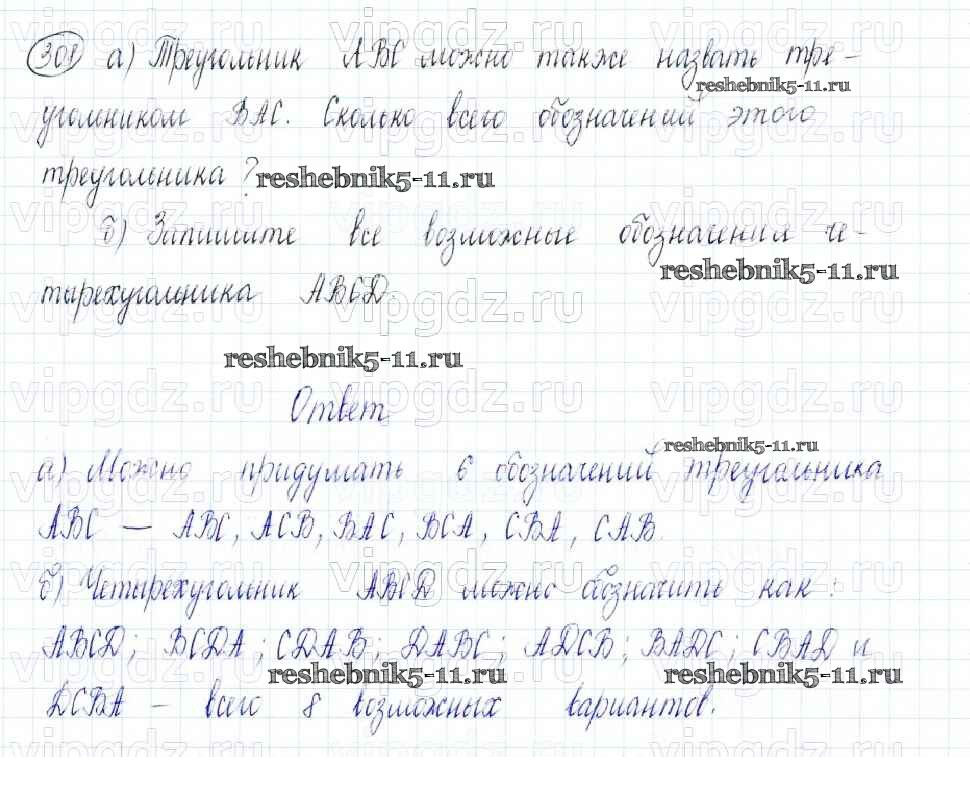 308 а) Треугольник АВС можно также назвать тре-
reshebnik5-11.ru
угольником ВАС. Сколько всего обозначений этого
треугольника? reshebnik5-11.ru
б) Запишите все возможные обозначения че-
reshebnik5-11.ru
тырехугольника ABCD.
reshebnik5-11.ru
Ответ
reshebnik5-11.ru
а) Можно придумать 6 обозначений треугольника
АВС — АВС, АСВ, ВАС, ВСА, СВА, САВ.
б) Четырехугольник ABCD можно обозначить как:
ABCD; BCDA; CDAB; DABC; ADCB; BADC; CBAD и
reshebnik5-11.ru reshebnik5-11.ru
DCBA – всего 8 возможных вариантов.
vipgdz.ru